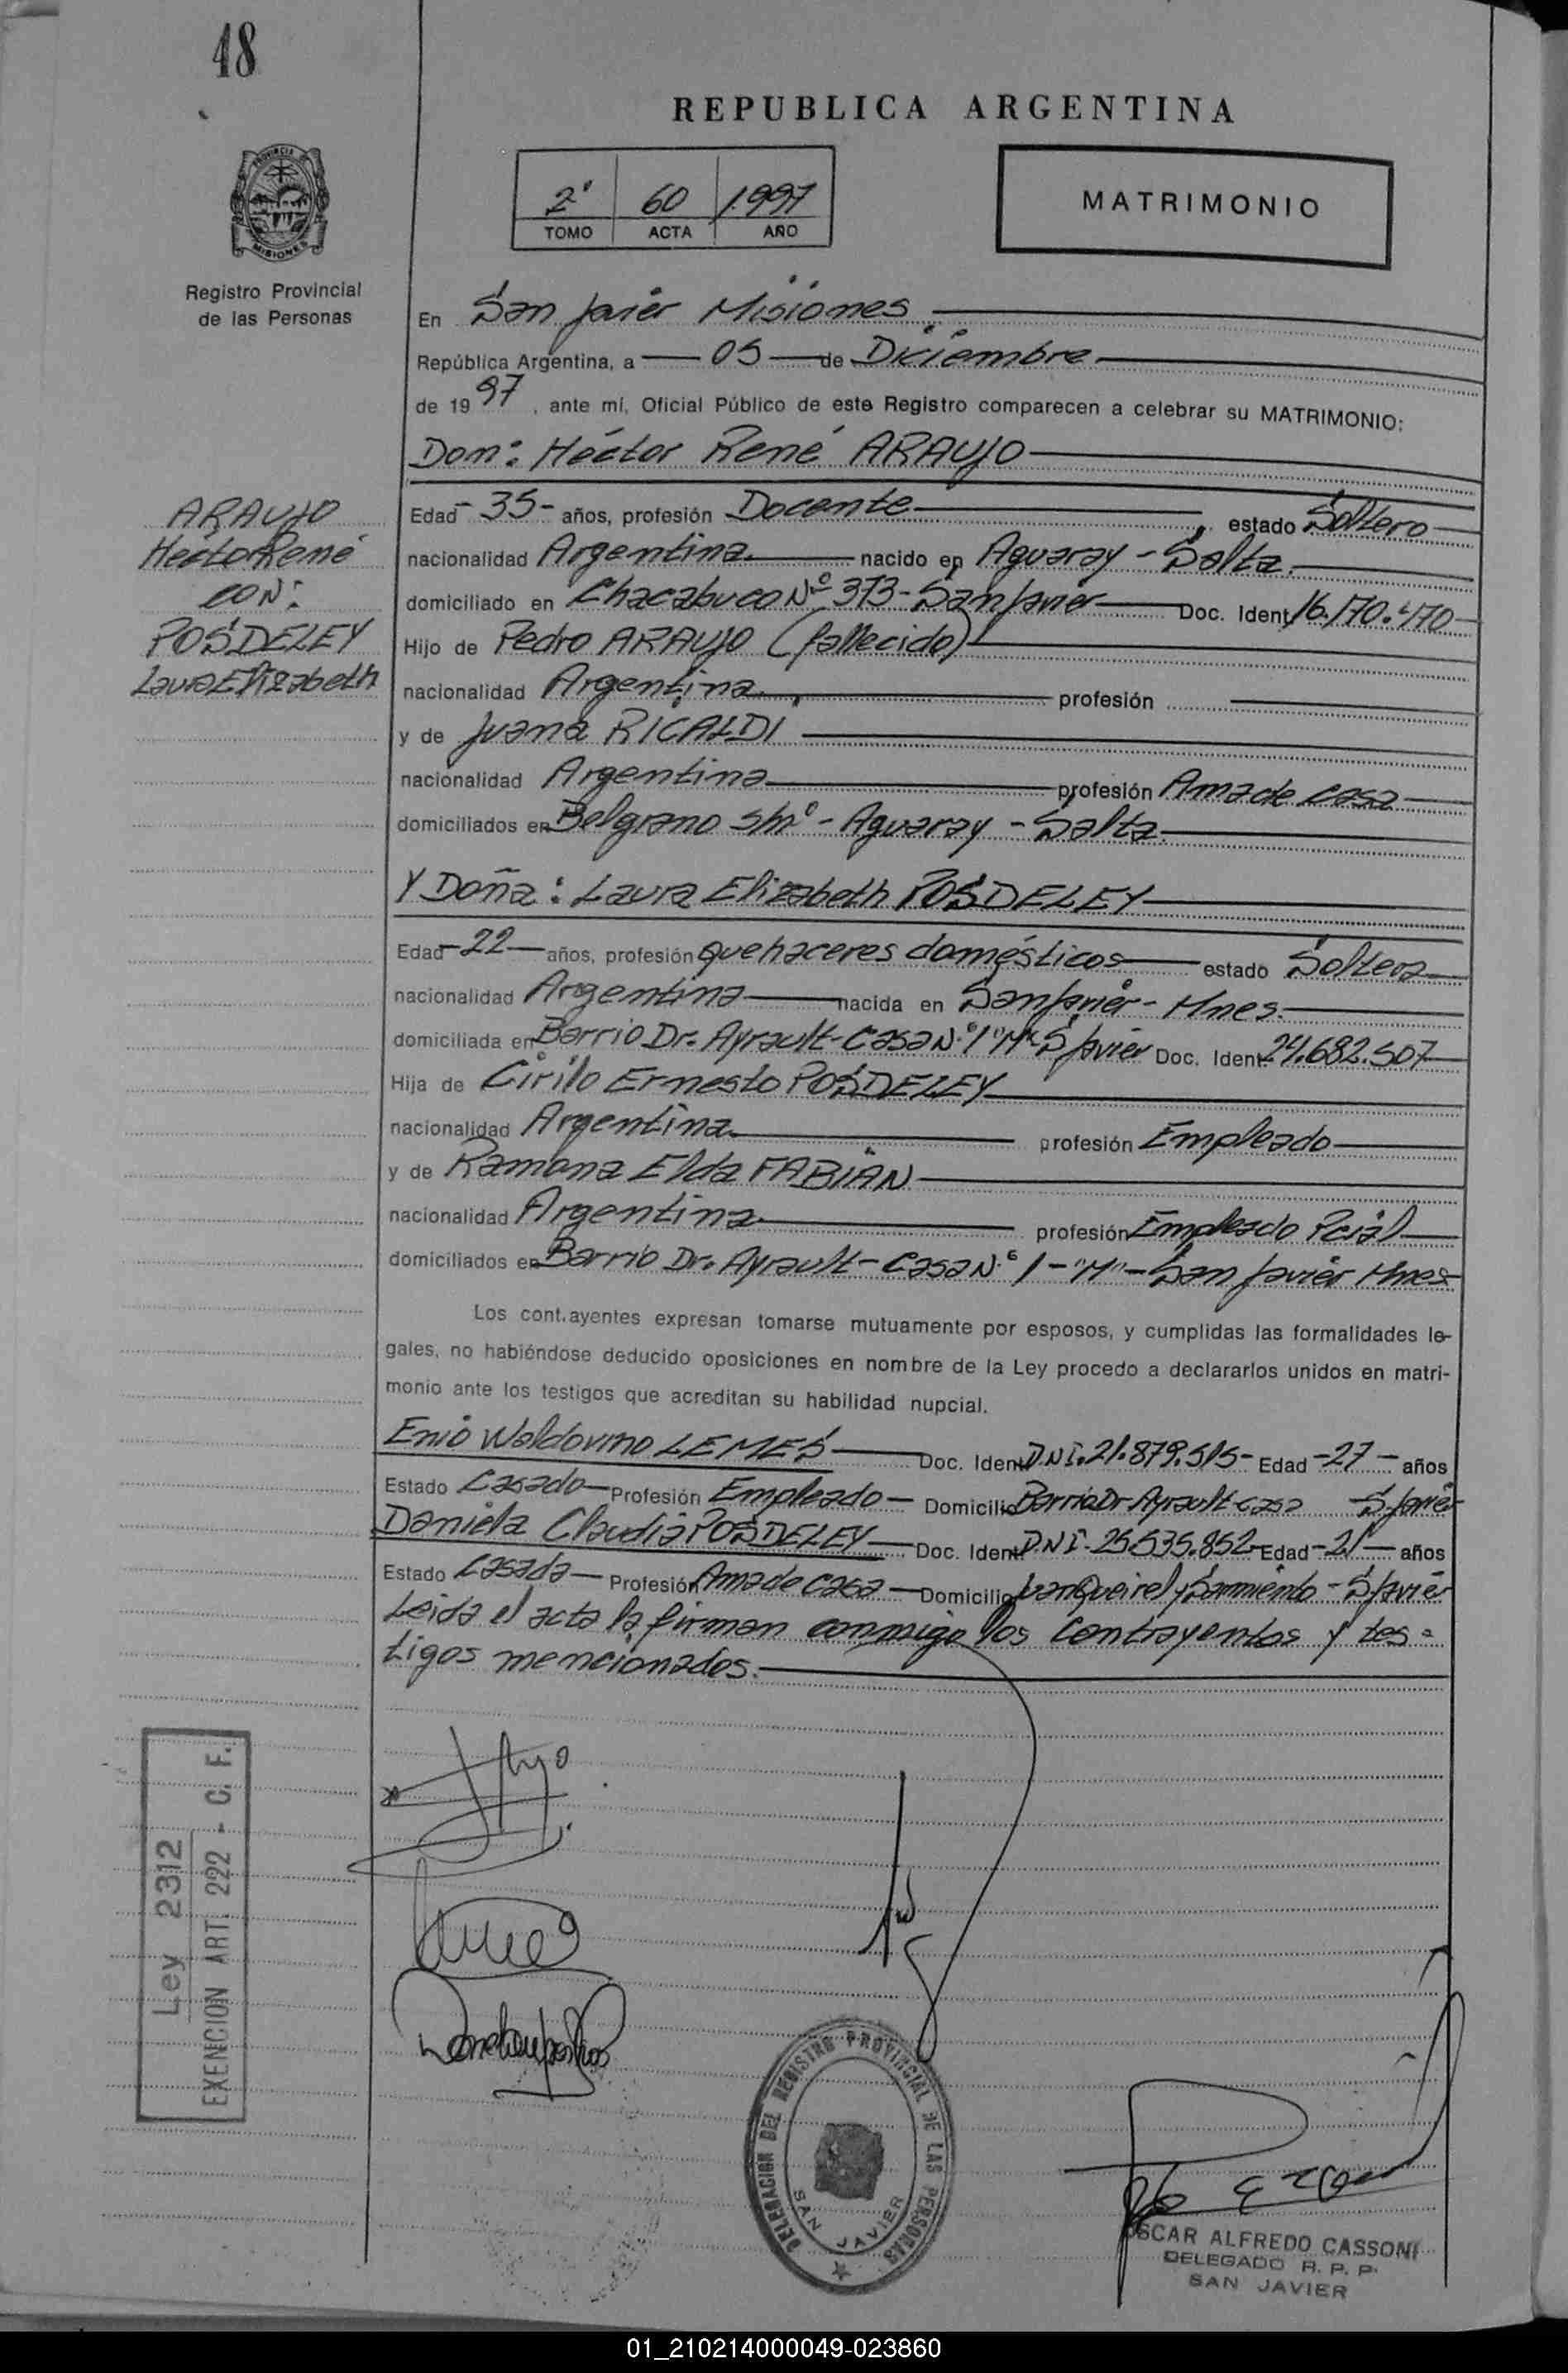 48
REPUBLICA ARGENTINA
PROVINCIA DE MISIONES
2º 60 1.997
TOMO ACTA AÑO
MATRIMONIO
Registro Provincial
de las Personas
En San Javier Misiones
República Argentina, a 05 de Diciembre
de 19 97, ante mí, Oficial Público de este Registro comparecen a celebrar su MATRIMONIO:
Don: Héctor René ARAUJO
ARAUJO
Héctor René
CON:
POSDELEY
Laura Elizabeth
Edad - 35 - años, profesión Docente, estado Soltero
nacionalidad Argentina nacido en Aguaray - Salta.
domiciliado en Chacabuco Nº 373 - San Javier Doc. Ident. 16.170.470
Hijo de Pedro ARAUJO (fallecido)
nacionalidad Argentina profesión
y de Juana RICALDI
nacionalidad Argentina profesión Ama de casa
domiciliados en Belgrano s/nº - Aguaray - Salta.
Y Doña: Laura Elizabeth POSDELEY
Edad - 22 - años, profesión quehaceres domésticos estado Soltera
nacionalidad Argentina nacida en San Javier - Mnes.
domiciliada en Barrio Dr. Ayrault - Casa N.º 1 "M" S Javier Doc. Ident. 24.682.507
Hija de Cirilo Ernesto POSDELEY
nacionalidad Argentina profesión Empleado
y de Ramona Elda FABIAN
nacionalidad Argentina profesión Empleado Pcial
domiciliados en Barrio Dr. Ayrault - Casa N.º 1 - "M" - San Javier Mnes
Los cont.ayentes expresan tomarse mutuamente por esposos, y cumplidas las formalidades le-
gales, no habiéndose deducido oposiciones en nombre de la Ley procedo a declararlos unidos en matri-
monio ante los testigos que acreditan su habilidad nupcial.
Enio Waldovino LEMES Doc. Ident. D.N.I. 21.879.515 - Edad - 27 - años
Estado Casado Profesión Empleado Domicilio Barrio Dr. Ayrault - casa S. Javier
Daniela Claudia POSDELEY Doc. Ident. D.N.I. 25.535.852 - Edad - 21 - años
Estado Casada Profesión Ama de casa Domicilio Juan Queirel y Sarmiento - S Javier
Leida el acta la firman conmigo los contrayentes y tes-
tigos mencionados.
Ley 2312
EXENCION ART. 222 - C. F.
DELEGACION DEL REGISTRO PROVINCIAL DE LAS PERSONAS
SAN JAVIER
OSCAR ALFREDO CASSONI
DELEGADO R. P. P.
SAN JAVIER
01_210214000049-023860